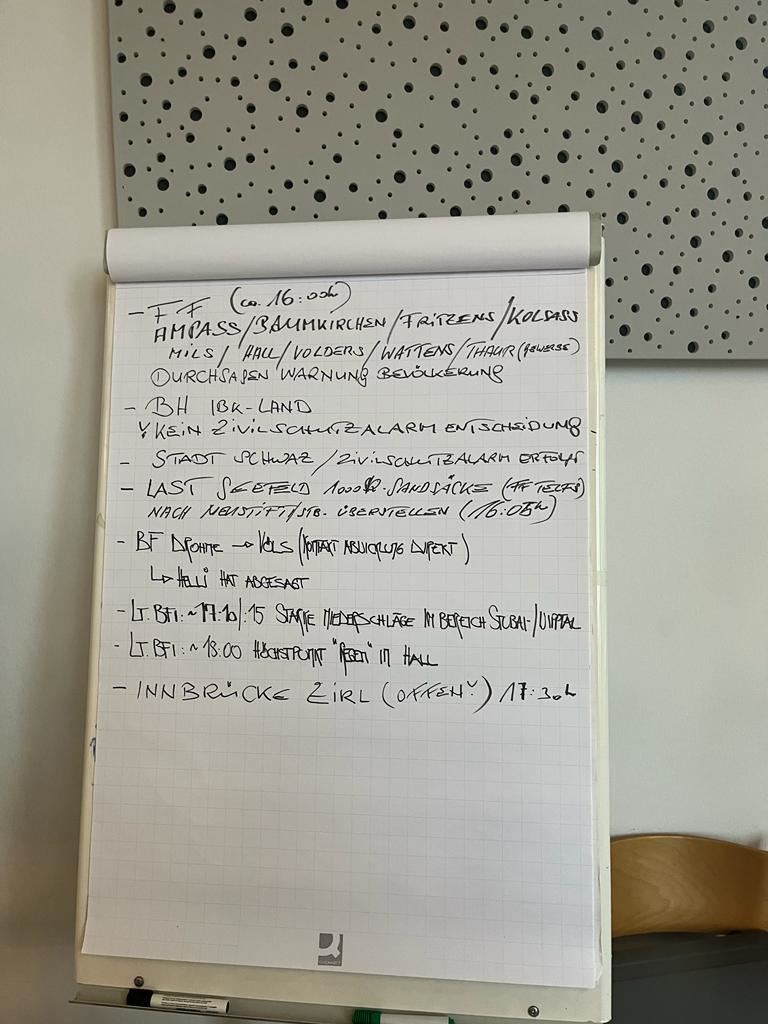 - FF (ca. 16:00h)
AMPASS/BAUMKIRCHEN/FRITZENS/KOLSASS
MILS/ HALL/VOLDERS/WATTENS/THAUR
DURCHSAGEN WARNUNG BEVÖLKERUNG
- BH IBK-LAND
KEIN ZIVILSCHUTZALARM ENTSCHEIDUNG
- STADT SCHWAZ /ZIVILSCHUTZALARM ERFOLGT
- LAST SEEFELD 1000 SANDSÄCKE (FF TELFS)
NACH NEUSTIFT/STB. ÜBERSTELLEN (16:05h)
- BF DROHNE → VÖLS (KONTAKT ABWICKLUNG DIREKT)
↳ HELLI HAT ABGESAGT
- LT. BFI: ~17:10/:15 STARKE NIEDERSCHLÄGE IM BEREICH STUBAI-/WIPPTAL
- LT. BFI: ~18:00 HÖCHSTPUNKT "REGEN" IN HALL
- INNBRÜCKE ZIRL (OFFEN) 17:30h